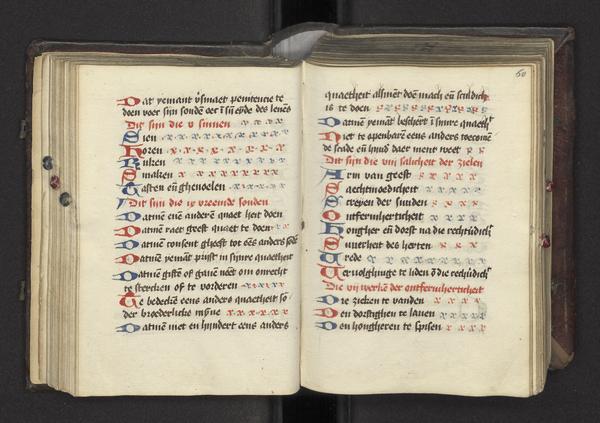 Dat yemant v'smaet penitencie te
doen voer sijn sonden oec i sij eynde des levens
Dit sijn die v sinnen
Sien
Horen
Ruken
Smaken
Tasten eñ ghevoelen
Dit sijn die ix vreemde sonden
Datmē enē anderē quaet heit doen
Datmē raet gheeft quaet te doen
Datmē consent gheeft tot
Datmē yemāt prijst in sijnre quaetheit
Datmē gifte of om onrecht
te stercken of te vorderen
Te bedeckē eens anders quaetheit
der broederlike
Datmē niet en hyndert eens anders
60
quaetheit alsmēt doē mach eñ sculdich
is te doen
Datmē yemāt beschert i sijnre quaeth'
Niet te openbarē eens anders
de scade eñ daer ment weet
Dit sijn die viii salicheit der zielen
Arm van geest
Saechtmoedicheit
Screyen der sunden
Ontfermherticheit
Hongher eñ dorst na die rechtūdich'
Suverheit des herten
Vrede
Vervolghinge te liden die rechtūdich'
Die vij werkē der ontfermherticheit
Die zieken te vanden
Den dorstighen te laven
Den hongheren te spisen